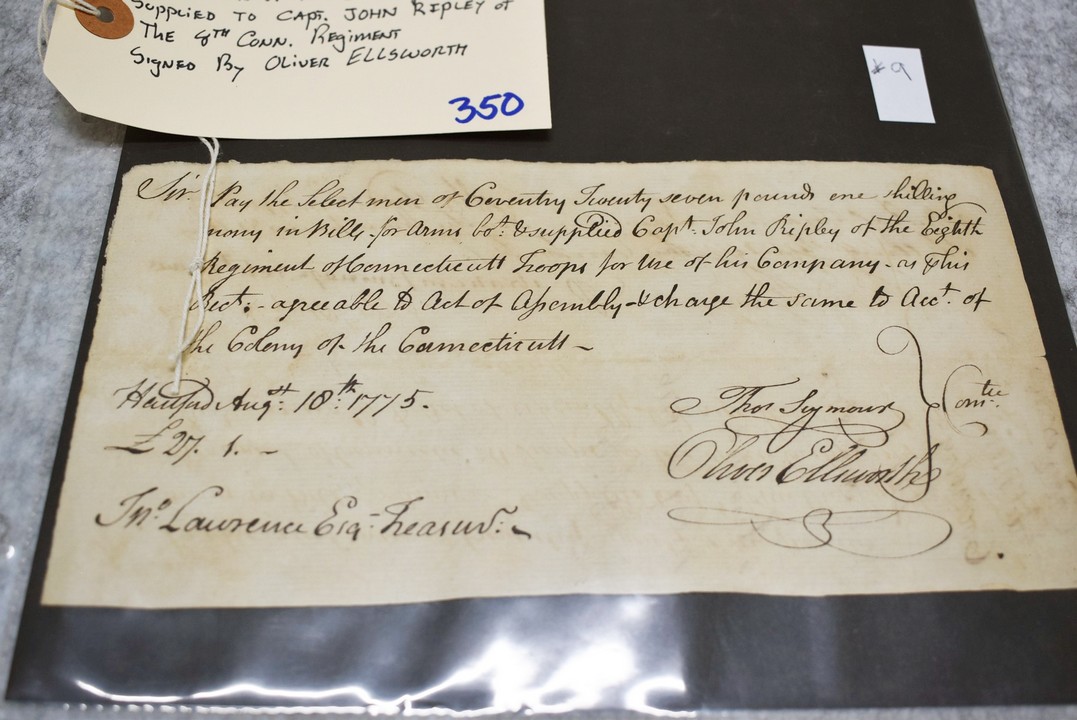 Supplied to Capt. John Ripley of
The 8th Conn. Regiment
Signed By Oliver Ellsworth
350
*9
Sir. Pay the Select men of Coventry Twenty seven pounds one shilling
mony in Bills for Arms bot. & supplied Capt. John Ripley of the Eighth
Regiment of Connecticutt Troops for Use of his Company - as this
Rect. - agreable to Act of Assembly - & charge the same to Acct. of
the Colony of the Connecticutt -
Hartford Augst. 18th. 1775.
£27. 1. -
Thos Seymour
Oliver Ellsworth
Comtee.
Jno. Lawrence Esqr Treasurr. -